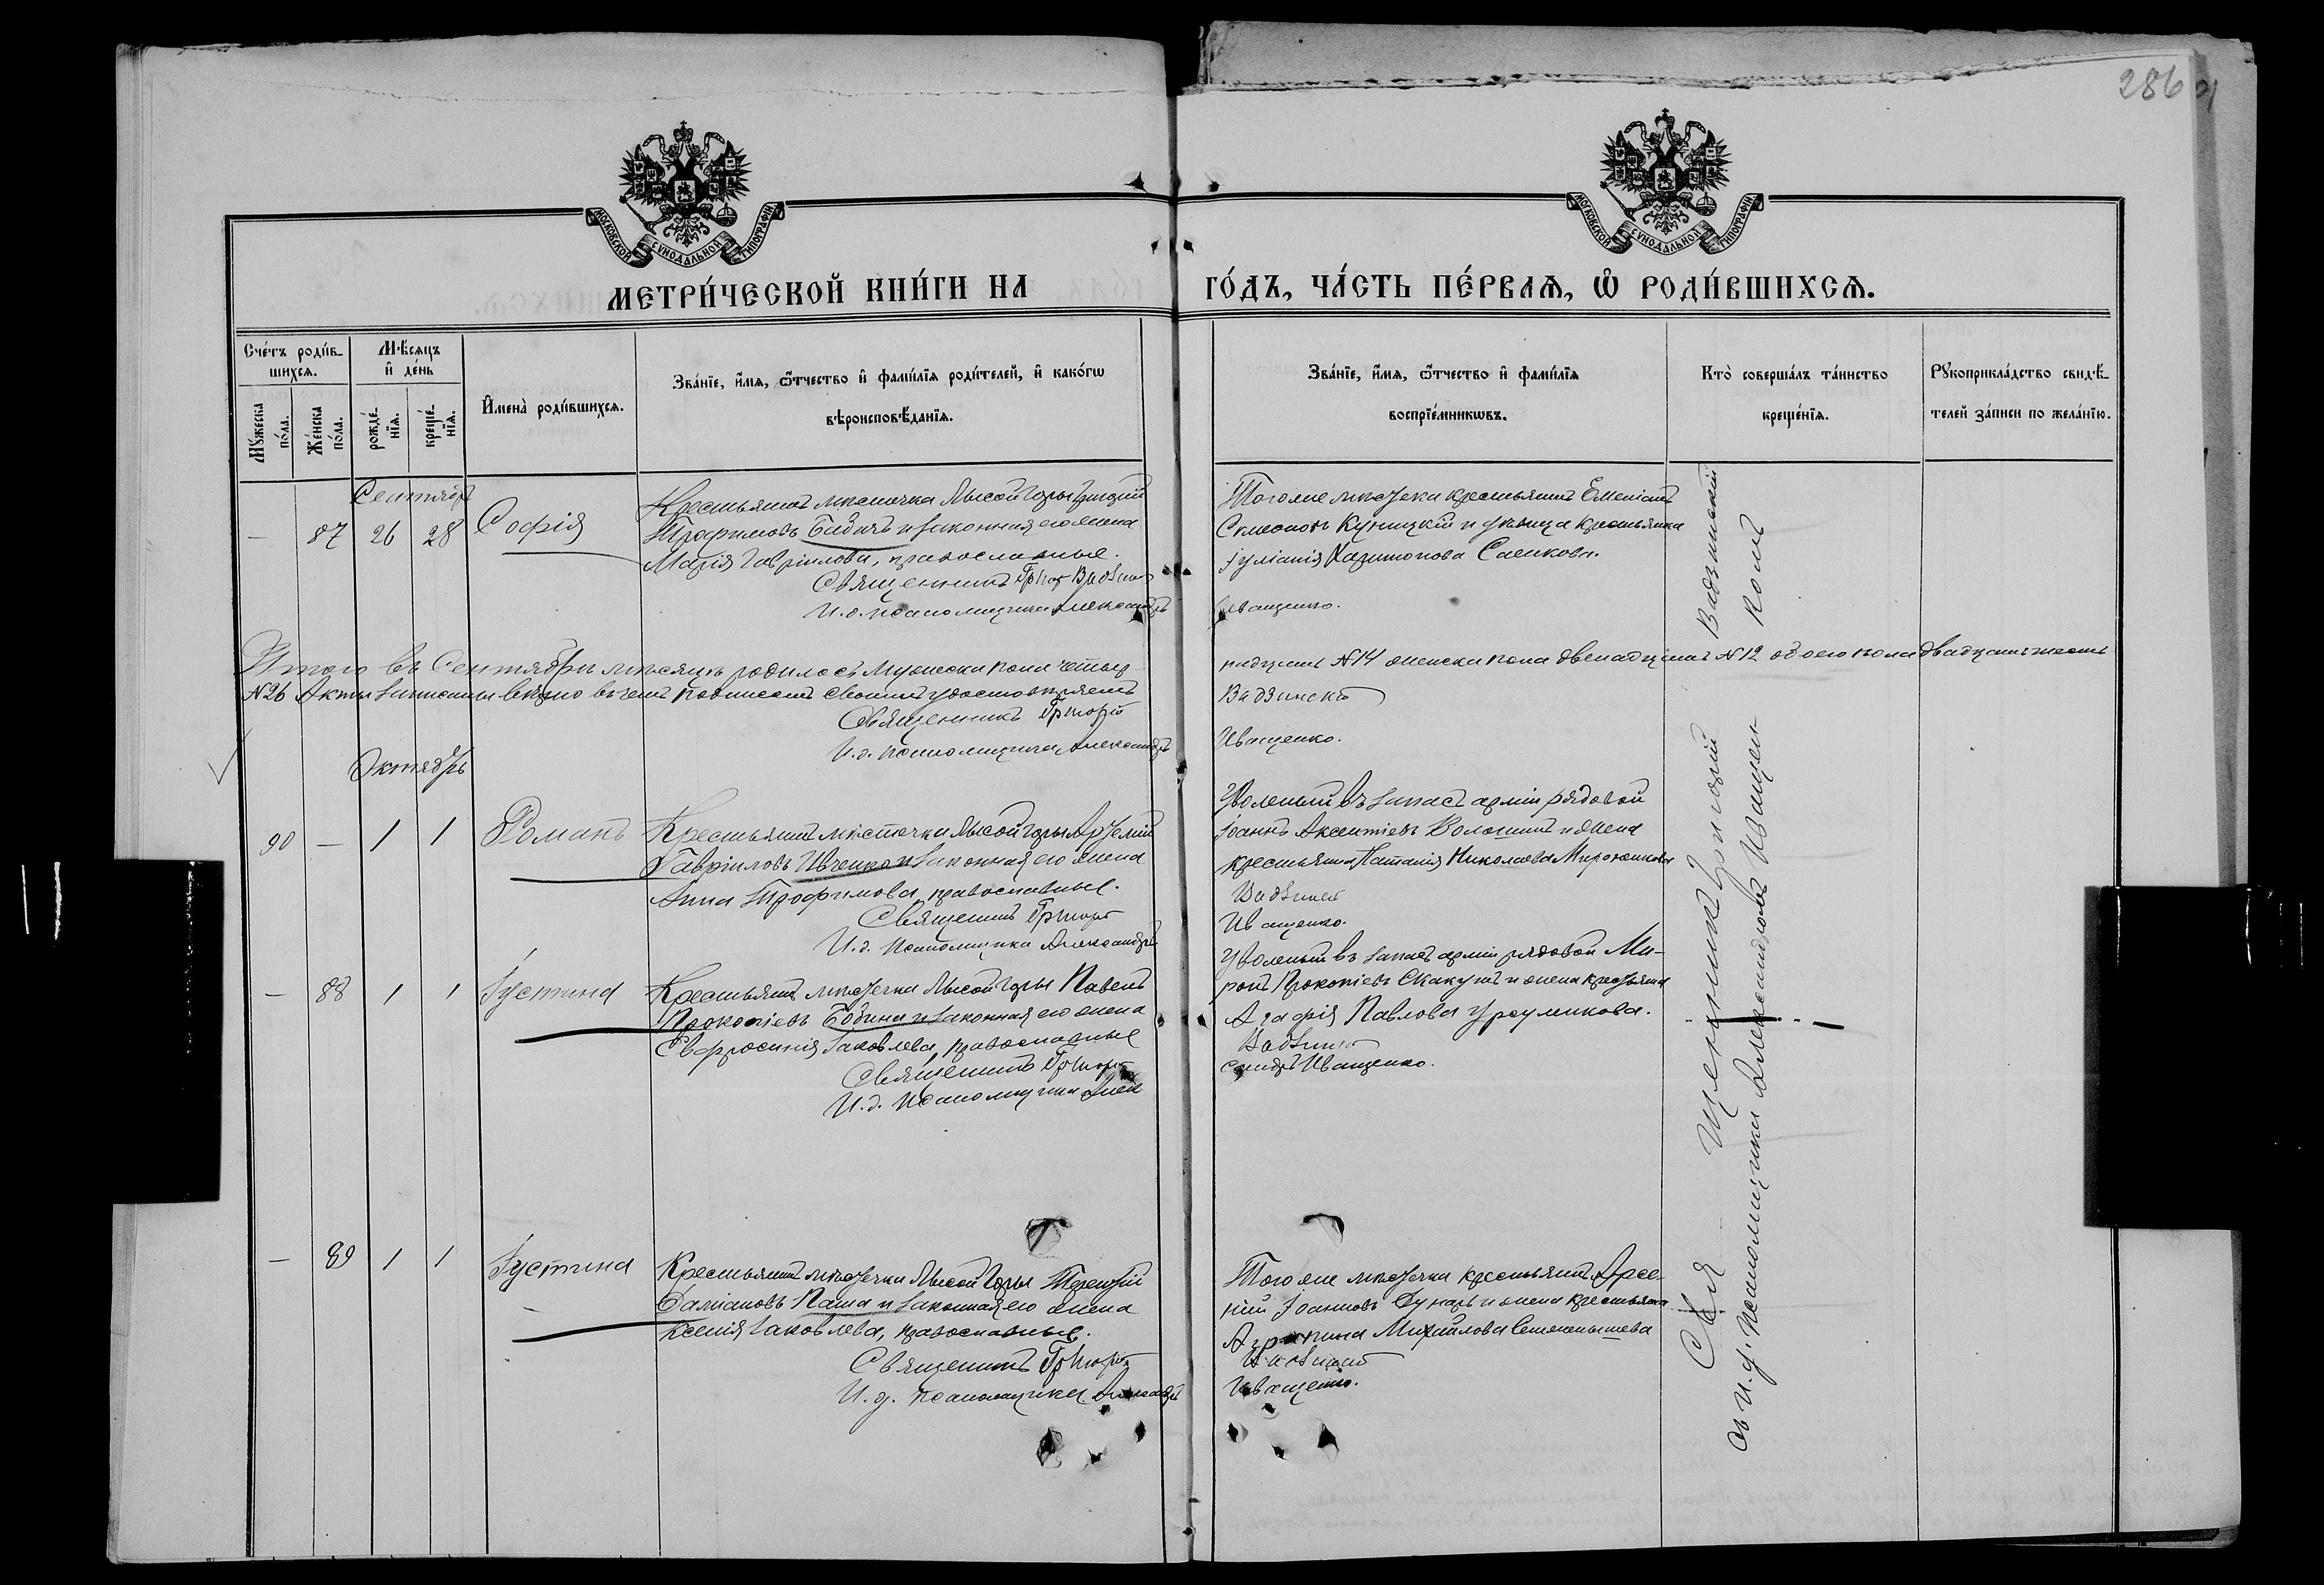 286
МОСКОВСКОЙ СѴНОДАЛЬНОЙ ТИПОГРАФІИ
МОСКОВСКОЙ СѴНОДАЛЬНОЙ ТИПОГРАФІИ
МЕТРИ́ЧЕСКОЙ КНИ́ГИ НА ГО́ДЪ, ЧА́СТЬ ПЕ́РВАѦ, Ѡ҆ РОДИ́ВШИХСѦ.
Сче́тъ роди́в-
шихсѧ.
Мꙋ́жеска
по́ла.
Же́нска
по́ла.
Мѣ́сяцъ
и҆ де́нь
рожде́-
нїѧ.
креще́-
нїѧ.
И҆мена̀ роди́вшихсѧ.
Зва́нїе, и҆́мѧ, ѻ҆́тчество и҆ фами́лїѧ роди́телей, и҆ како́гѡ
вѣроисповѣ́данїѧ.
Зва́нїе, и҆́мѧ, ѻ҆́тчество и҆ фами́лїѧ
воспрїе́мникѡвъ.
Кто̀ соверша́лъ та́инство
креще́нїѧ.
Рꙋкоприкла́дство свидѣ́-
телей за́писи по жела́нїю.
Сентябрь
— 87 26 28 Софія
Крестьянинъ мѣстечка Лысой Горы Григорій
Трофимовъ Бабичъ и законная его жена
Марія Гавріилова, православные.
Священникъ Григор Вадзинск
И. д. псаломщика Александръ
Тогоже мѣстечка крестьянинъ Емеліанъ
Симеоновъ Куницкій и дѣвица крестьянка
Іуліанія Харитонова Саенкова.
Иващенко.
Итого въ Сентябрѣ мѣсяцѣ родилось мужеска пола четыр-
надцать №14 женска пола двенадцать №12 обоего пола двадцать шесть
№26 Акты записаны вѣрно въ чемъ подписомъ своимъ удостовѣряемъ
Священникъ Григорій
Вадзинскій
И. д. псаломщика Александръ
Иващенко.
Октябрь
90 — 1 1 Романъ
Крестьянинъ мѣстечка Лысой Горы Арсеній
Гавріиловъ Ивченко и законная его жена
Анна Трофимова, православные.
Священникъ Григорій
И. д. псаломщика Александръ
Уволеный въ запасъ арміи рядовой
Іоаннъ Аксентіевъ Волошинъ и жена
крестьянина Наталія Николаева Мирошникова
Вадзинск
Иващенко.
— 88 1 1 Іустина
Крестьянинъ мѣстечка Лысой Горы Павелъ
Прокопіевъ Бабина и законная его жена
Евфросинія Іаковлева, православные
Священникъ Григорій
И. д. псаломщика Алек
Уволеный въ запасъ арміи рядовой Ми-
ронъ Прокопіевъ Скакунъ и жена крестьянина
Агафія Павлова
Вадзинск
сандръ Иващенко.
— 89 1 1 Іустина
Крестьянинъ мѣстечка Лысой Горы Терентій
Даміановъ Паша и законная его жена
Ксенія Іаковлева, православные.
Священникъ Григорій
И. д. псаломщика Александръ
Тогоже мѣстечка крестьянинъ Арсе-
ній Іоанновъ и жена крестьянина
Агрипина Михайлова
Вадзинскій
Иващенко.
Священникъ Григорій Вадзинскій
съ и. д. псаломщика Александромъ Иващенкомъ